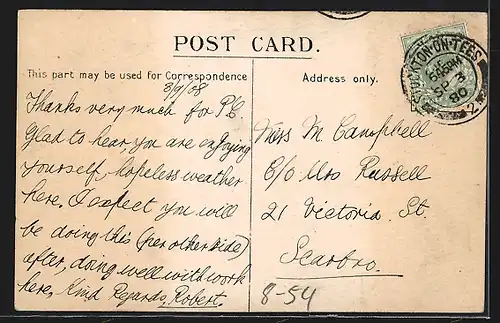 POST CARD.
This part may be used for Correspondence
Address only.
3/9/08
Thanks very much for P.C.
Glad to hear you are enjoying
yourself, hopeless weather
here. I expect you will
be doing this (per other side)
after, doing well with work
here, Kind Regards, Robert.
Miss M Campbell
C/O Mrs Russell
21 Victoria St.
Scarbro.
8-54
STOCKTON-ON-TEES
SP 3
2